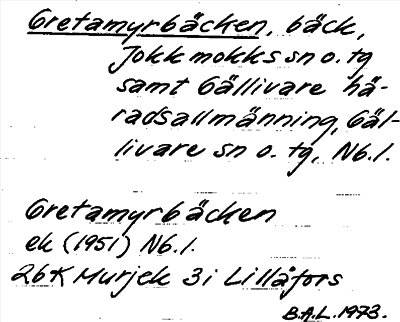 Gretamyrbäcken, bäck,
Jokkmokks sn o. tg
samt Gällivare hä-
radsallmänning, Gäl-
livare sn o. tg, Nb.l.
Gretamyrbäcken
ek (1951) Nb.l.
26K Murjek 3i Lillåfors
B.A.L. 1973.